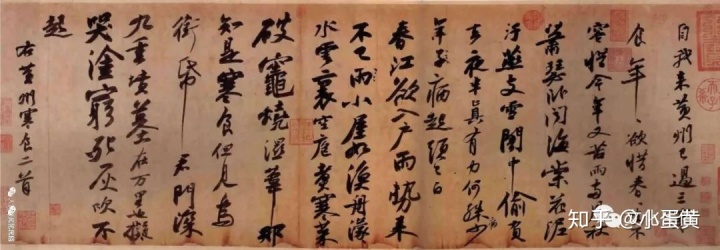 自我来黄州已過三
食年〻欲惜春〻去
容惜今年又苦雨兩月
蕭瑟卧聞海棠花泥
汙燕支雪闇中偷負
去夜半真有力何殊少
年子病起頭已白
春江欲入户雨勢来
不已雨小屋如漁舟濛〻
水雲裏空庖煮寒菜
破竈燒濕葦那
知是寒食但見烏
銜帋君門深
九重墳墓在万里也擬
哭塗窮死灰吹不
起
右黄州寒食二首
知乎 @小蛋黄